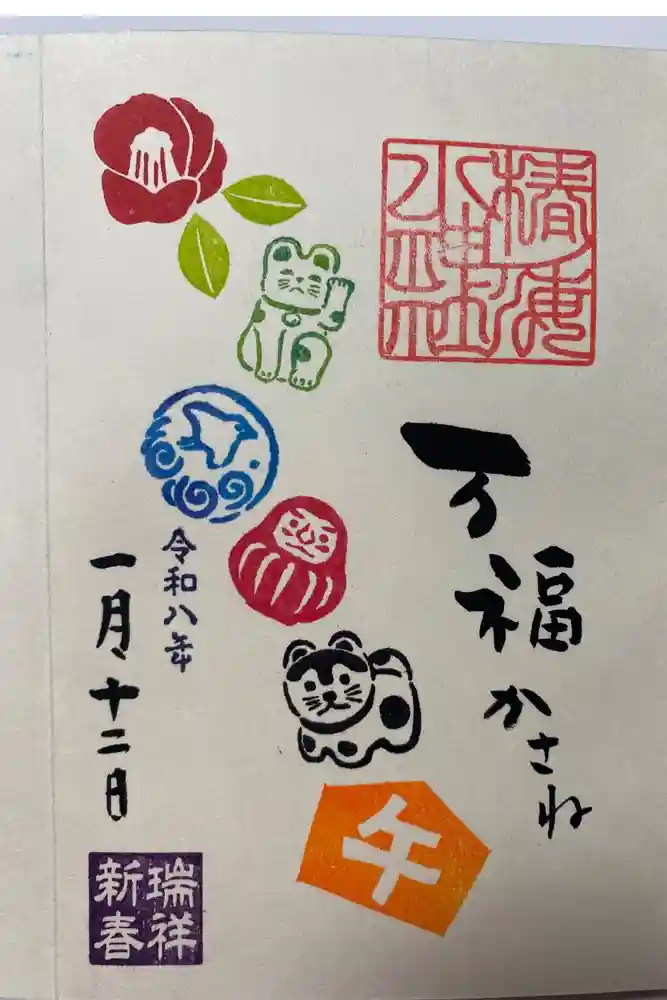 椿海
水神社
万福かさね
午
令和八年
一月十二日
瑞祥
新春